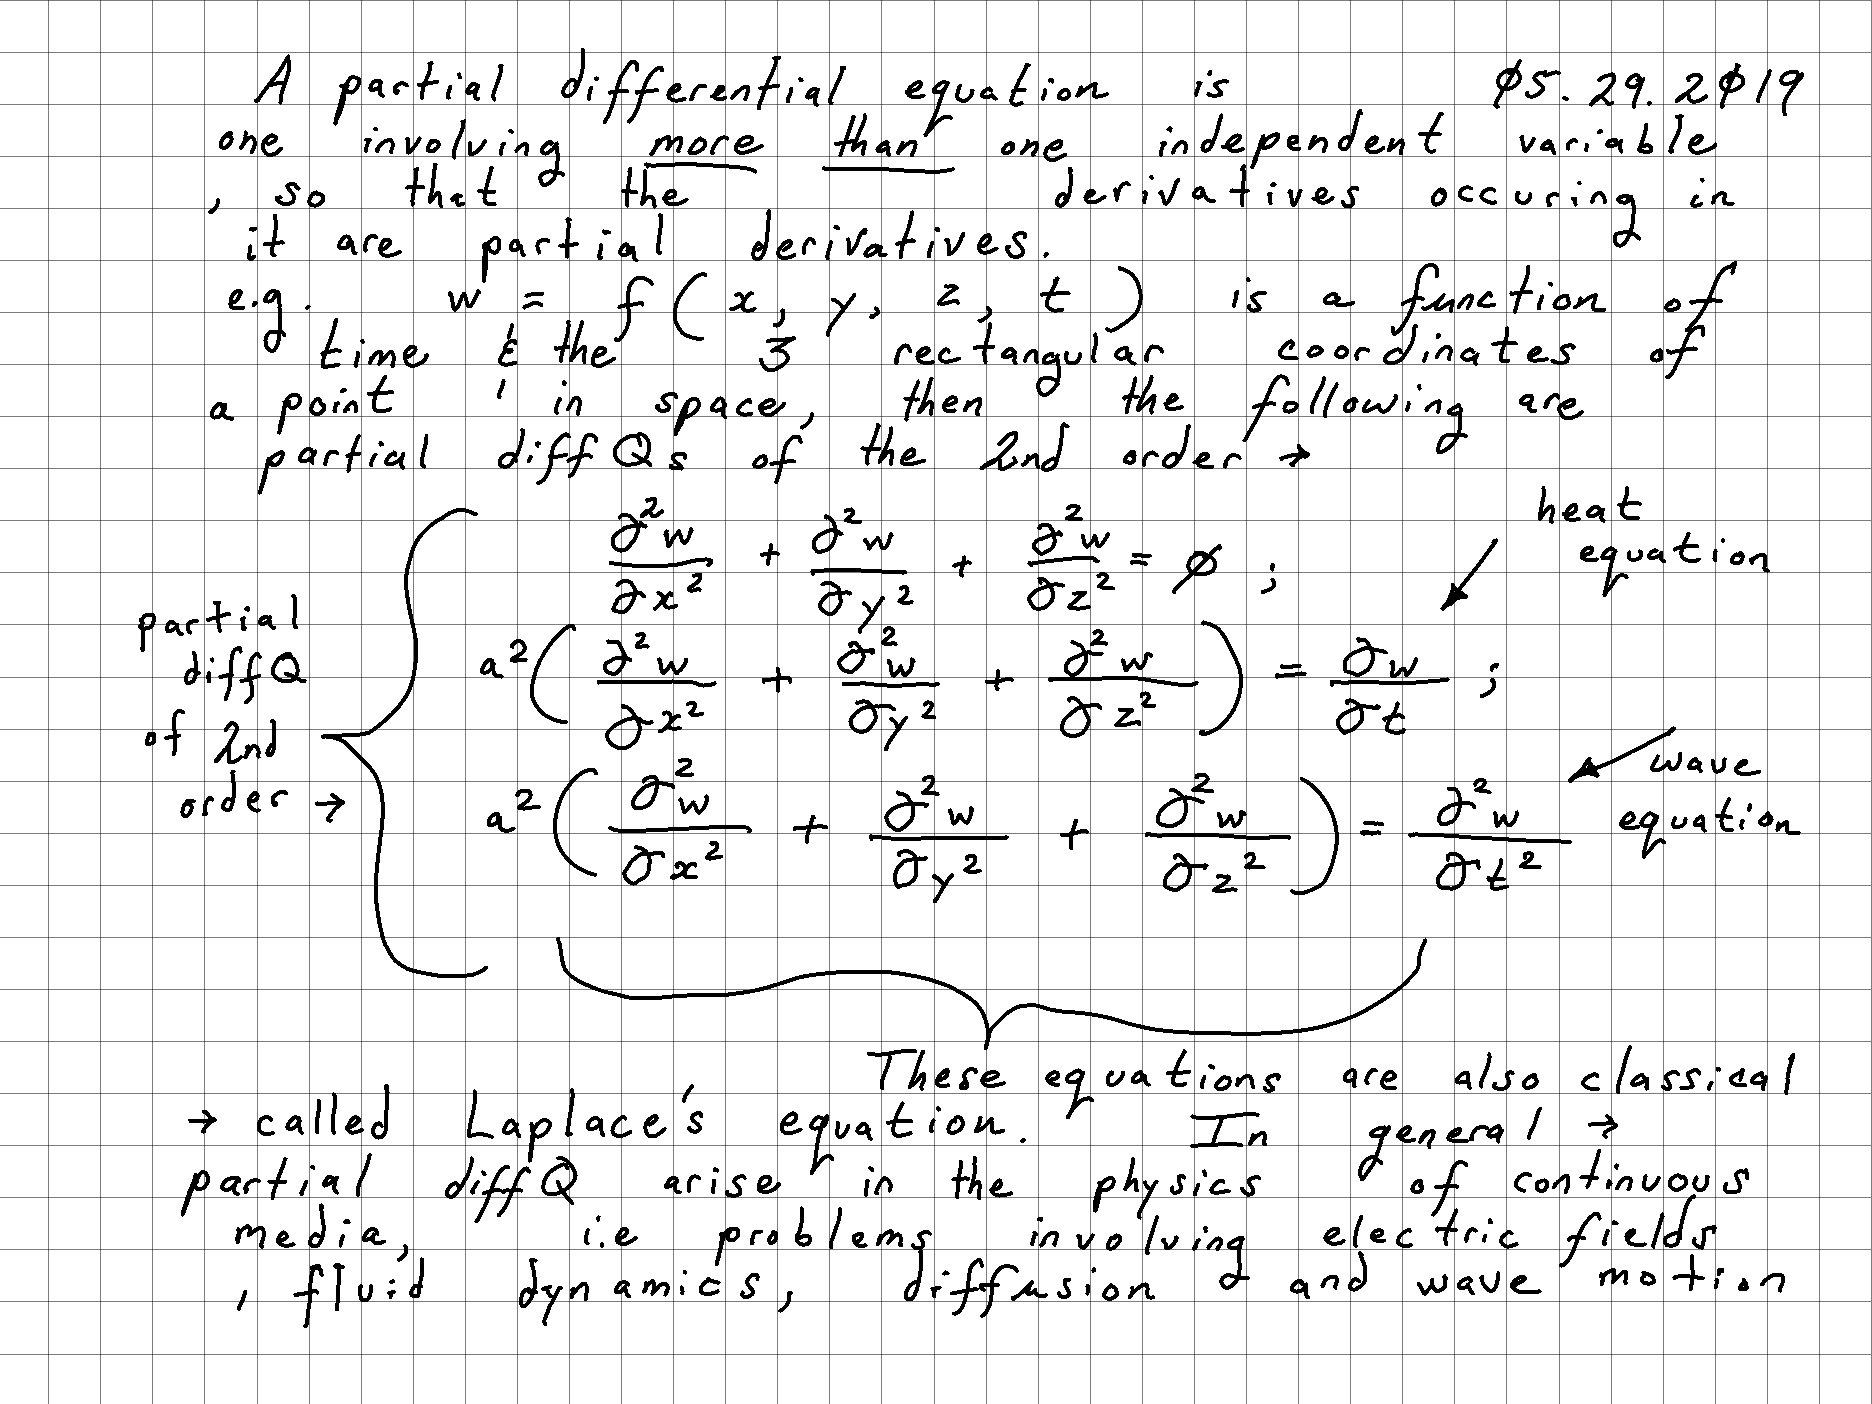 A partial differential equation is ø5.29.2ø19
one involving more than one independent variable
, so that the derivatives occuring in
it are partial derivatives.
e.g. w = f ( x, y, z, t ) is a function of
time & the 3 rectangular coordinates of
a point in space, then the following are
partial diffQs of the 2nd order →
heat
equation
∂²w/∂x² + ∂²w/∂y² + ∂²w/∂z² = ø ;
partial
diffQ
of 2nd
order →
a² ( ∂²w/∂x² + ∂²w/∂y² + ∂²w/∂z² ) = ∂w/∂t ;
a² ( ∂²w/∂x² + ∂²w/∂y² + ∂²w/∂z² ) = ∂²w/∂t²
wave
equation
These equations are also classical
→ called Laplace's equation. In general →
partial diffQ arise in the physics of continuous
media, i.e problems involving electric fields
, fluid dynamics, diffusion and wave motion